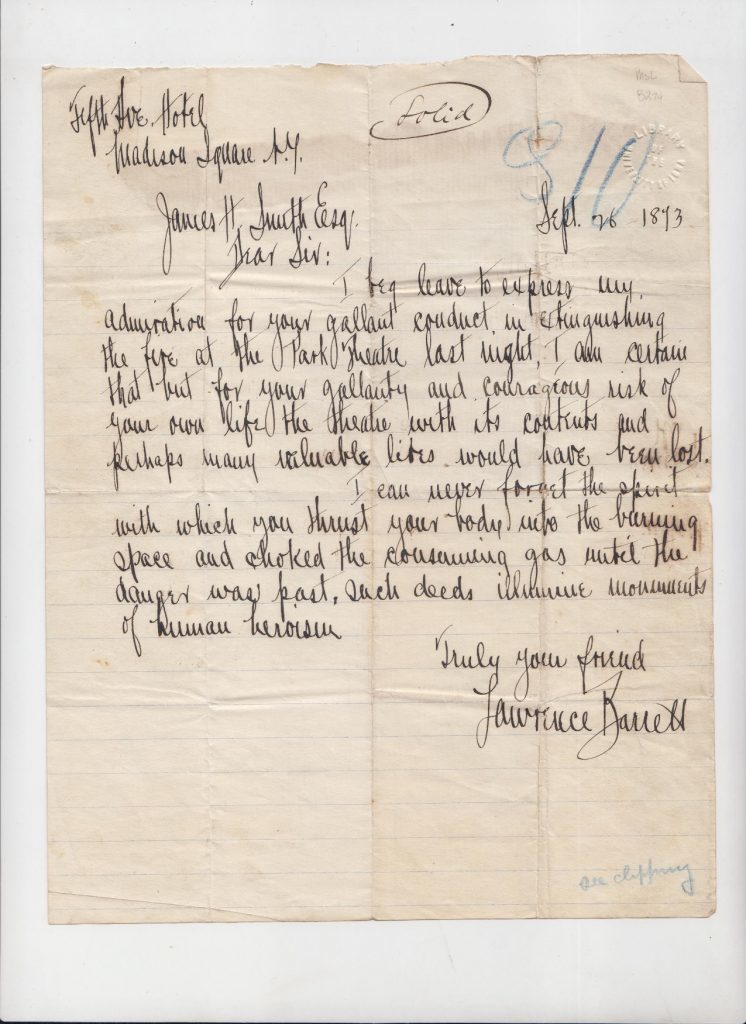 Fifth Ave. Hotel
Madison Square N.Y.
Solid
810
LIBRARY
Sept. 26 1873
James H. Smith Esq.
Dear Sir:
I beg leave to express my
admiration for your gallant conduct in extinguishing
the fire at the Park Theatre last night, I am certain
that but for your gallantry and courageous risk of
your own life the theatre with its contents and
perhaps many valuable lives would have been lost.
I can never forget the spirit
with which you thrust your body into the burning
space and choked the consuming gas until the
danger was past. such deeds illumine monuments
of human heroism
Truly your friend
Lawrence Barrett
see clipping